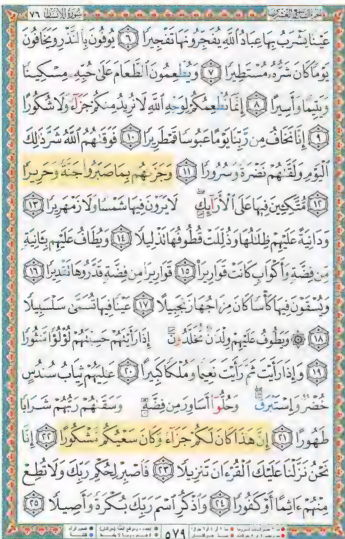 سورة الإنسان ٧٦
عَيۡنٗا يَشۡرَبُ بِهَا عِبَادُ ٱللَّهِ يُفَجِّرُونَهَا تَفۡجِيرٗا ٦ يُوفُونَ بِٱلنَّذۡرِ وَيَخَافُونَ
يَوۡمٗا كَانَ شَرُّهُۥ مُسۡتَطِيرٗا ٧ وَيُطۡعِمُونَ ٱلطَّعَامَ عَلَىٰ حُبِّهِۦ مِسۡكِينٗا
وَيَتِيمٗا وَأَسِيرًا ٨ إِنَّمَا نُطۡعِمُكُمۡ لِوَجۡهِ ٱللَّهِ لَا نُرِيدُ مِنكُمۡ جَزَآءٗ وَلَا شُكُورًا
٩ إِنَّا نَخَافُ مِن رَّبِّنَا يَوۡمًا عَبُوسٗا قَمۡطَرِيرٗا ١٠ فَوَقَىٰهُمُ ٱللَّهُ شَرَّ ذَٰلِكَ
ٱلۡيَوۡمِ وَلَقَّىٰهُمۡ نَضۡرَةٗ وَسُرُورٗا ١١ وَجَزَىٰهُم بِمَا صَبَرُواْ جَنَّةٗ وَحَرِيرٗا
١٢ مُّتَّكِـِٔينَ فِيهَا عَلَى ٱلۡأَرَآئِكِۖ لَا يَرَوۡنَ فِيهَا شَمۡسٗا وَلَا زَمۡهَرِيرٗا ١٣
وَدَانِيَةً عَلَيۡهِمۡ ظِلَٰلُهَا وَذُلِّلَتۡ قُطُوفُهَا تَذۡلِيلٗا ١٤ وَيُطَافُ عَلَيۡهِم بِـَٔانِيَةٖ
مِّن فِضَّةٖ وَأَكۡوَابٖ كَانَتۡ قَوَارِيرَا۠ ١٥ قَوَارِيرَاْ مِن فِضَّةٖ قَدَّرُوهَا تَقۡدِيرٗا ١٦
وَيُسۡقَوۡنَ فِيهَا كَأۡسٗا كَانَ مِزَاجُهَا زَنجَبِيلًا ١٧ عَيۡنٗا فِيهَا تُسَمَّىٰ سَلۡسَبِيلٗا
١٨ ۞ وَيَطُوفُ عَلَيۡهِمۡ وِلۡدَٰنٞ مُّخَلَّدُونَ إِذَا رَأَيۡتَهُمۡ حَسِبۡتَهُمۡ لُؤۡلُؤٗا مَّنثُورٗا
١٩ وَإِذَا رَأَيۡتَ ثَمَّ رَأَيۡتَ نَعِيمٗا وَمُلۡكٗا كَبِيرًا ٢٠ عَٰلِيَهُمۡ ثِيَابُ سُندُسٍ
خُضۡرٞ وَإِسۡتَبۡرَقٞۖ وَحُلُّوٓاْ أَسَاوِرَ مِن فِضَّةٖ وَسَقَىٰهُمۡ رَبُّهُمۡ شَرَابٗا
طَهُورًا ٢١ إِنَّ هَٰذَا كَانَ لَكُمۡ جَزَآءٗ وَكَانَ سَعۡيُكُم مَّشۡكُورًا ٢٢ إِنَّا
نَحۡنُ نَزَّلۡنَا عَلَيۡكَ ٱلۡقُرۡءَانَ تَنزِيلٗا ٢٣ فَٱصۡبِرۡ لِحُكۡمِ رَبِّكَ وَلَا تُطِعۡ
مِنۡهُمۡ ءَاثِمًا أَوۡ كَفُورٗا ٢٤ وَٱذۡكُرِ ٱسۡمَ رَبِّكَ بُكۡرَةٗ وَأَصِيلٗا ٢٥
٥٧٩